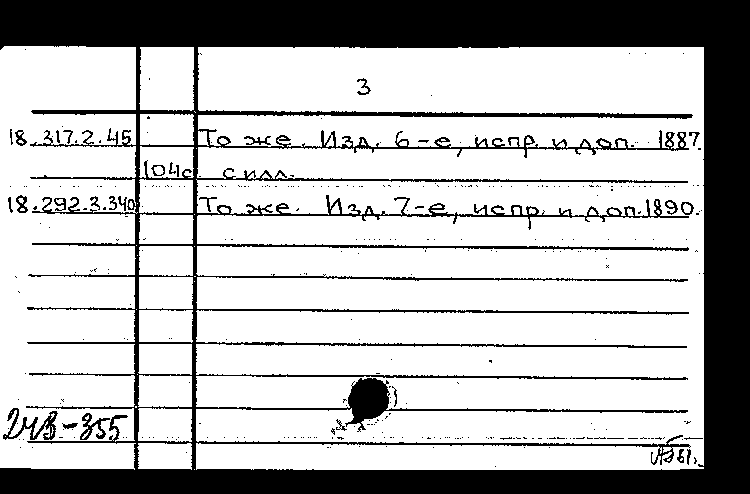 3
18.317.2.45 То же. Изд. 6-е, испр. и доп. 1887.
104с. с илл.
18.292.3.340 То же. Изд. 7-е, испр. и доп. 1890.